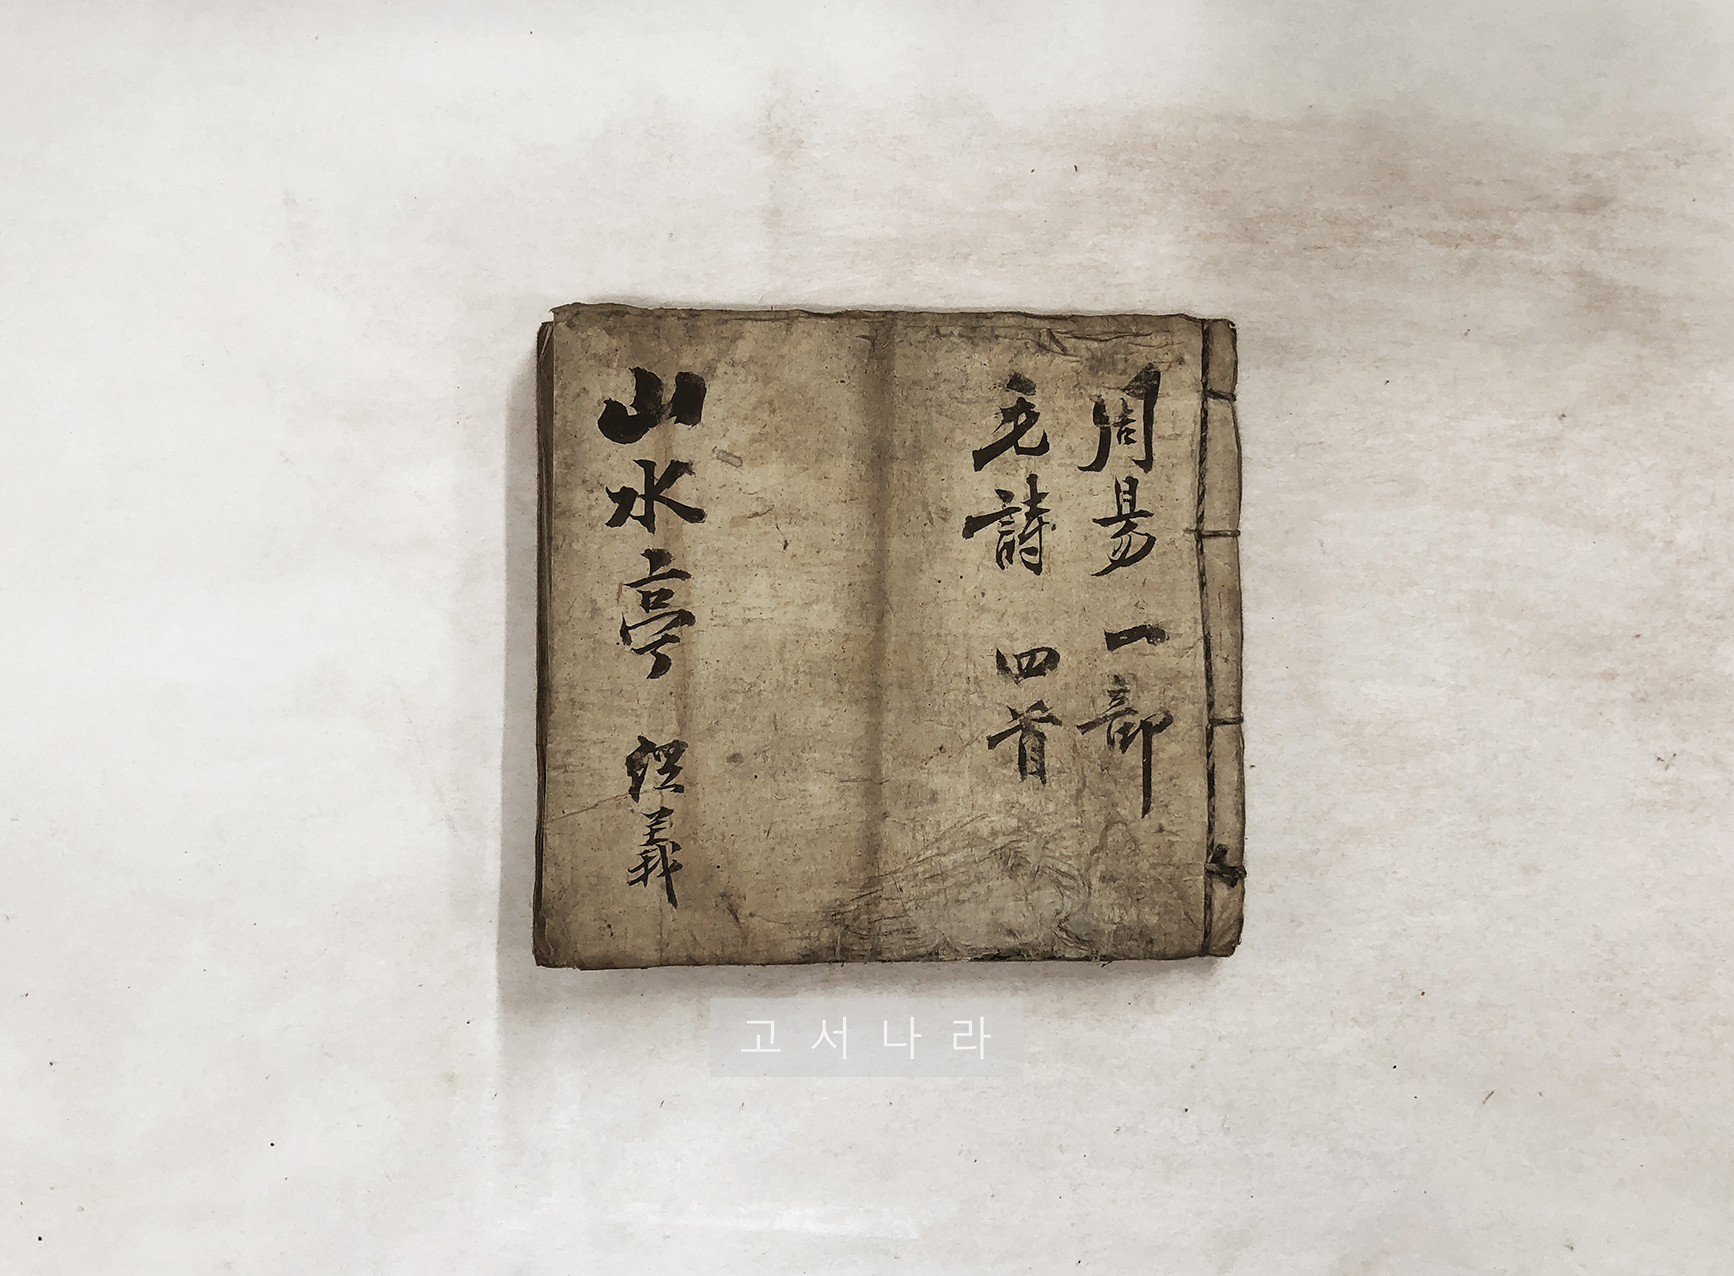 周易 一部
毛詩 四首
山水亭 經義
고서나라